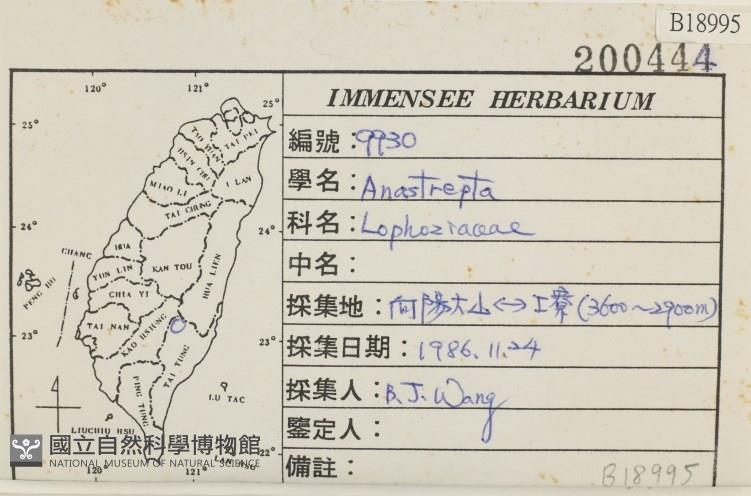 B18995
200444
IMMENSEE HERBARIUM
編號：9930
學名：Anastrepta
科名：Lophoziaceae
中名：
採集地：向陽大山<->工寮(3600~2900m)
採集日期：1986.11.24
採集人：B.J. Wang
鑒定人：
備註：
B18995
120° 121° 25°
25°
TAI PEI
I LAN
MIAO LI
TAI CHUNG
24° 24°
CHANG
HUA
YUN LIN
KAN TOU
HUA LIEN
PENG HU
CHIA YI
TAI NAN
KAO HSIUNG
23° 23°
TAI TUNG
PING TUNG
LU TAC
LIUCHIU HSU
22° 22°
120° 121°
國立自然科學博物館
NATIONAL MUSEUM OF NATURAL SCIENCE